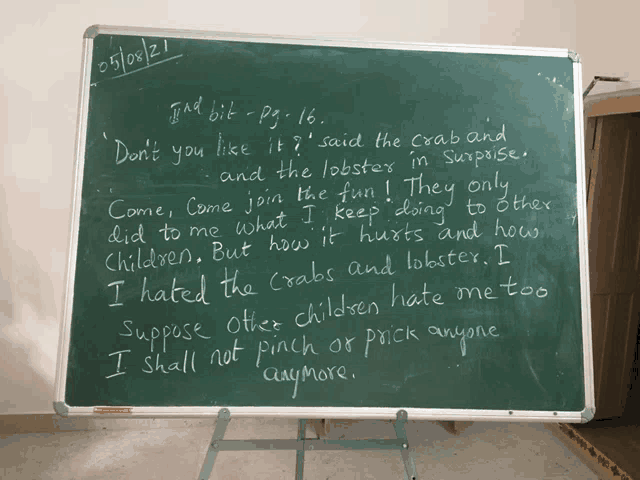 05/08/21
IInd bit - Pg - 16.
'Don't you like it?' said the crab and
and the lobster in surprise.
Come, Come join the fun! They only
did to me what I keep doing to other
children. But how it hurts and how
I hated the crabs and lobster. I
suppose other children hate me too
I shall not pinch or prick anyone
anymore.